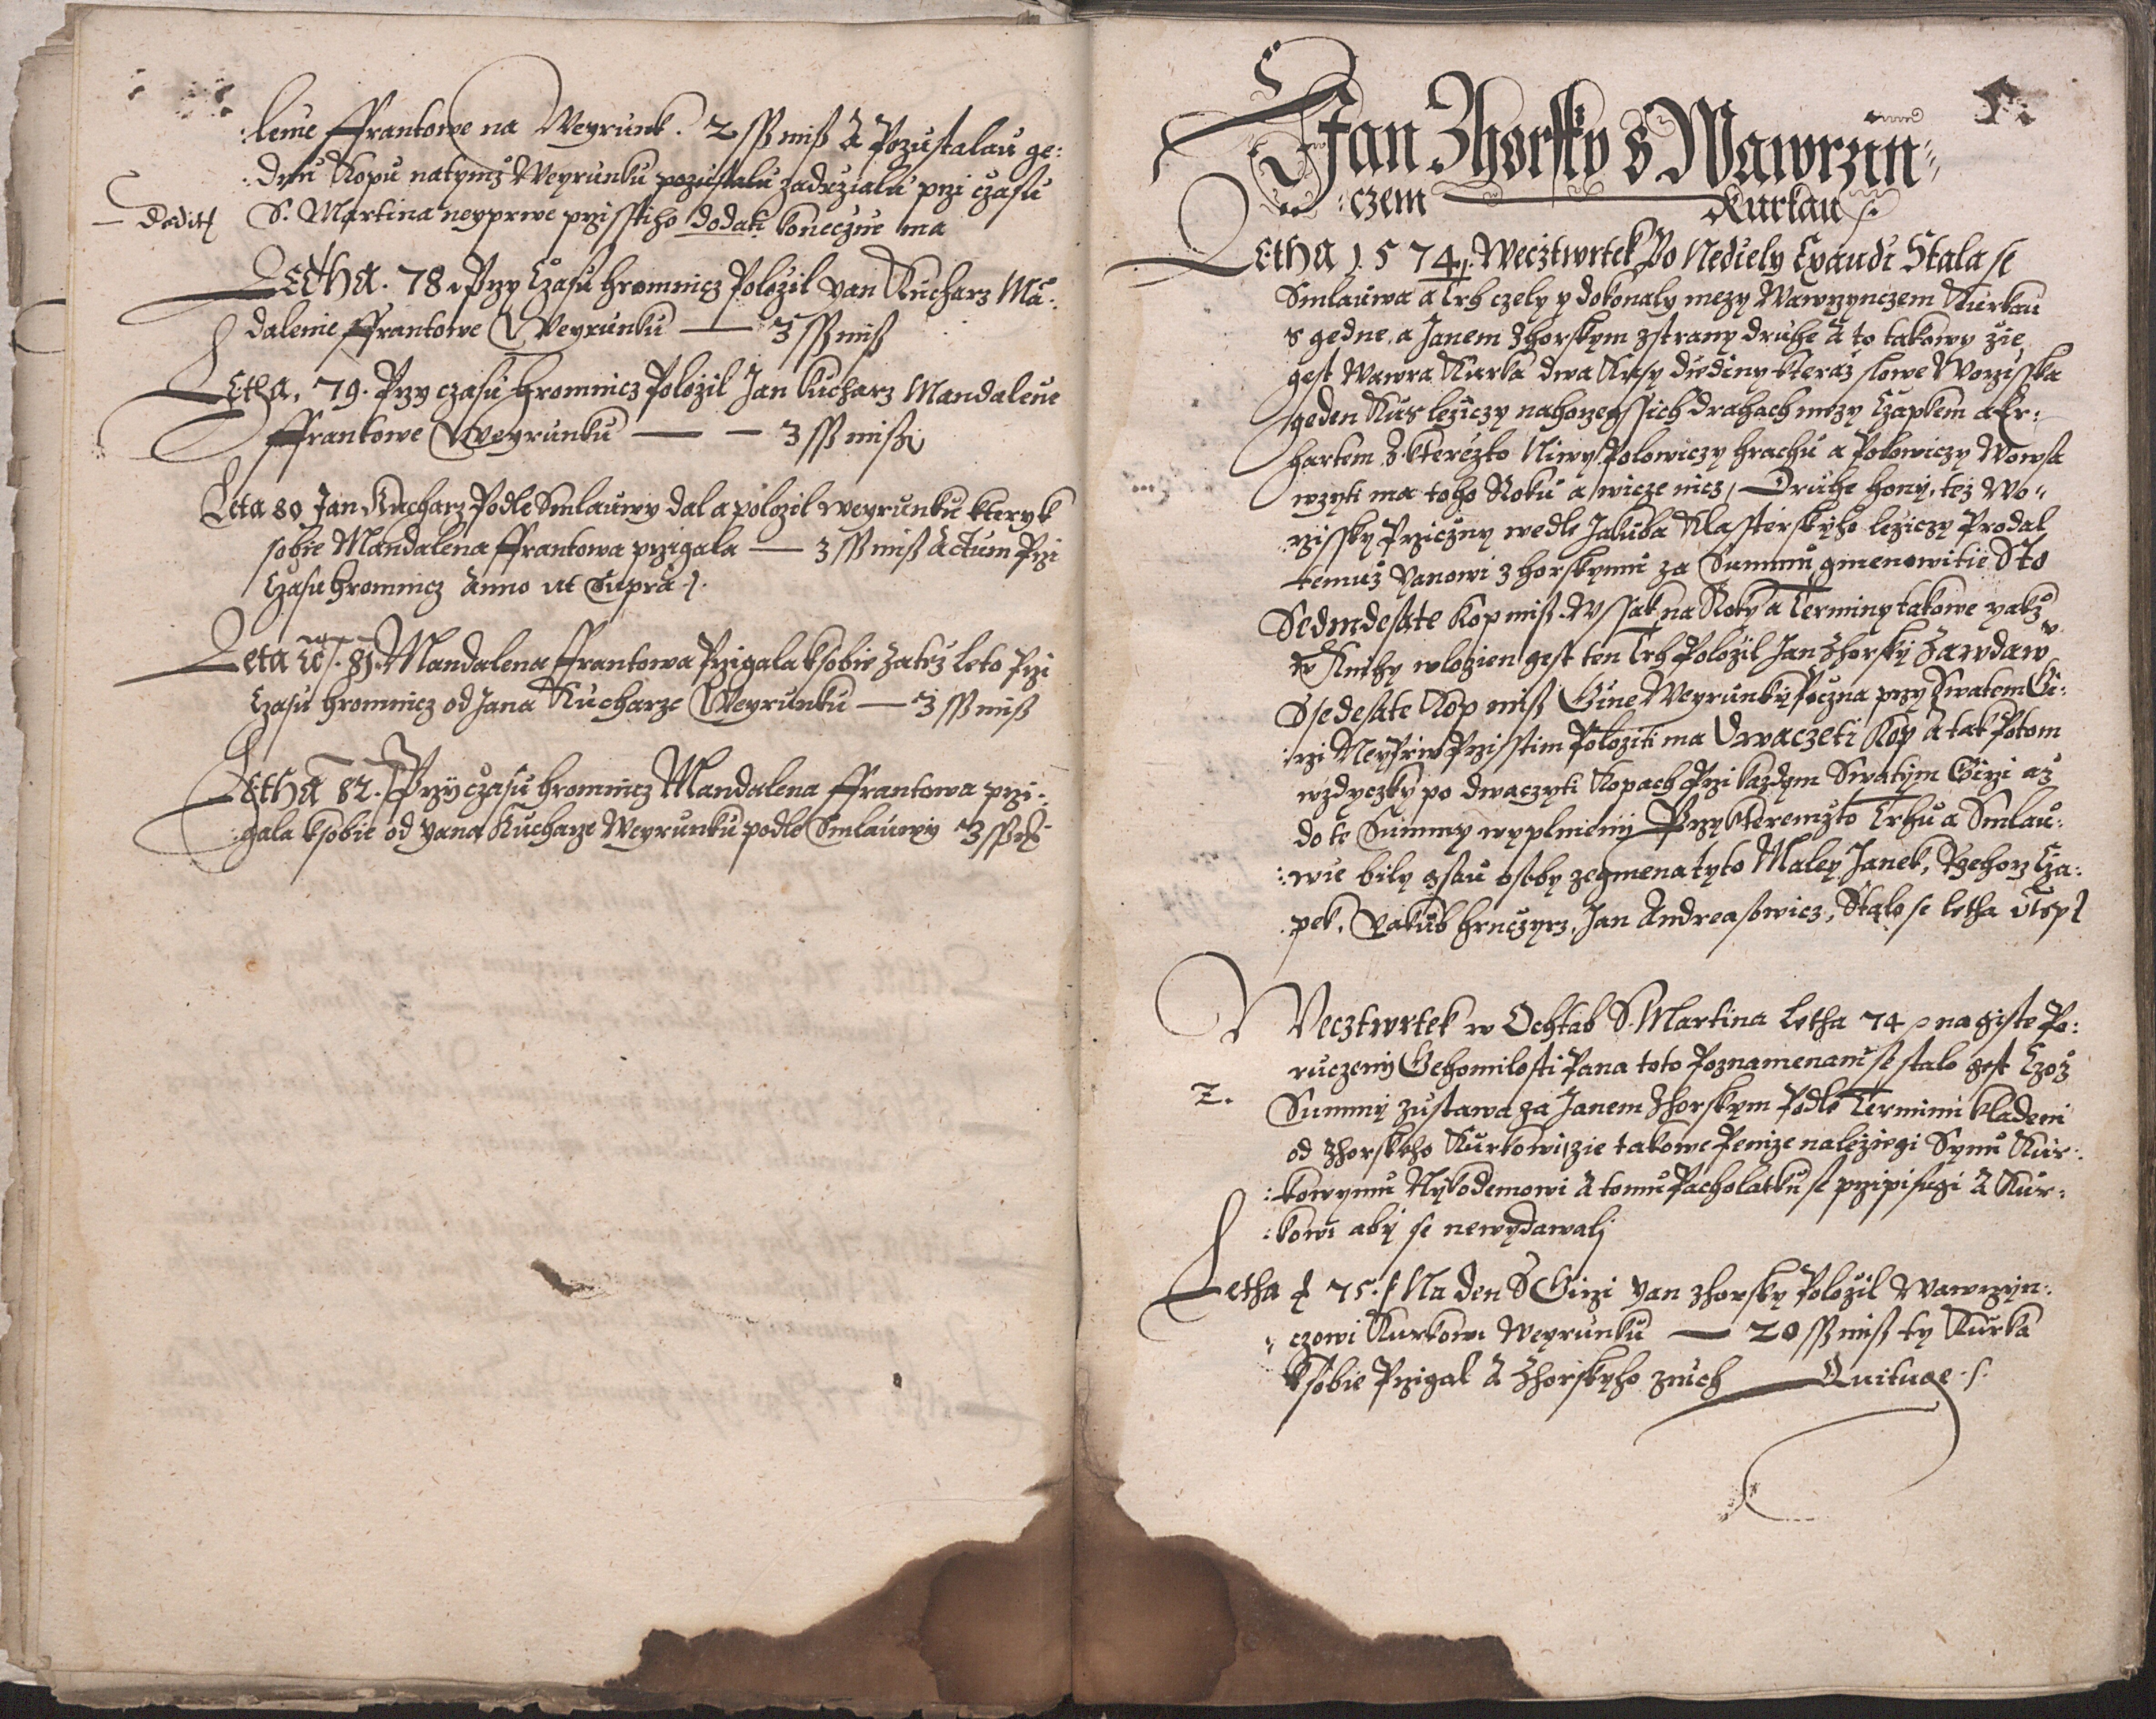 leme Ffrantowe na Weyrunk. 2 ssß miß A Pozustalau ge:
dnu Kopu natymz Weyrunku pozustalu zadrzialu przi czasu
dedit S. Martina neyprwe przisstiho dodati konecznie ma
LEtha. 78. Przy Czasu hromnicz Polozil yan Kucharz Ma:
dalenie Ffrantowe Weyrunku — 3 ssß miß
LEtha. 79. Przy czasu hromnicz Polozil Jan kucharz Mandalene
Ffrantowe Weyrunku — — 3 ssß miß
Leta 80 Jan Kucharz Podle Smlauwy dal a polozil weyrunku kteryk
sobie Mandalena Ffrantowa przigala — 3 ssß miß Actum Przi
Czasu hromnicz Anno ut Supra
Leta 81. Mandalena Ffrantowa Przigala ksobie Zatez leto Przi
Czasu hromnicz od Jana Kucharze Weyrunku — 3 ssß miß
LEtha 82. Przy czasu hromnicz Mandalena Ffrantowa przi:
:gala ksobie od yana Kucharze Weyrunku podle Smlauwy 3 ssß
Jan Zhorsky s Wawrzin„
:czem — Kurkau
LEtha 1574. Wecztwrtek Po Nediely Exaudi Stala se
Smlauwa a Trh czely y dokonaly mezy Wawrzynczem Kurkau
s gedne, a Janem Zhorskym zstrany druhe A to takowy zie
gest Wawra Kurka dwa Kusy diediny kteraz slowe Worzisska
geden Kus leziczy nahorzegssich drahach mezy Czapkem a Er:
hartem Z kterezto Niwy Polowiczy hrachu a Polowiczy Wowsa
wzyti ma toho Roku a wicze nicz, Druhe hony, tez Wo„
rzissky Przicziny wedle Jakuba Klasterskyho leziczy Prodal
temuz yanowi Zhorskymu za Summu gmenowitie Sto
Sedmdesate Kop miß. Wssak na Roky a Terminy takowe yakz
w Knihy wlozien gest ten Trh Polozil Jan Zhorsky Zawdaw
Ssedesate Kop miß Gine Weyrunky Poczna przy Swatem Gi:
:rzi Neyprw Przisstim Poloziti ma Dwaczeti Kop A tak Potom
wzdyczky po dwaczyti Kopach Przi kazdym Swatym Girzi az
do te Summy wyplnieny Przy kteremzto Trhu a Smlau:
:wie bily gsau osoby zegmena tyto Maley Janek, Rzehorz Cza:
pek, Yakub hrnczyrz, Jan Andreasowicz, Stalo se letha utsp
Wecztwrtek w Ochtab S. Martina Letha 74 na giste Po:
ruczeny Gehomilosti Pana toto Poznamenani se stalo gest Czoz
2. Summy zustawa za Janem Zhorskym Podle Terminu kladeni
od Zhorskeho Kurkowi, zie takowe Penize naleziegi Synu Kur:
:kowymu Nykodemowi A tomu Pacholatku se przipisugi A Kur:
:kowi aby se newydawalj
Letha 75. Na den S Girzi yan Zhorsky Polozil Wawrzyn:
„czowi Kurkowi Weyrunku — 20 ssß miß ty Kurka
ksobie Przigal A Zhorskyho znich — Quituge